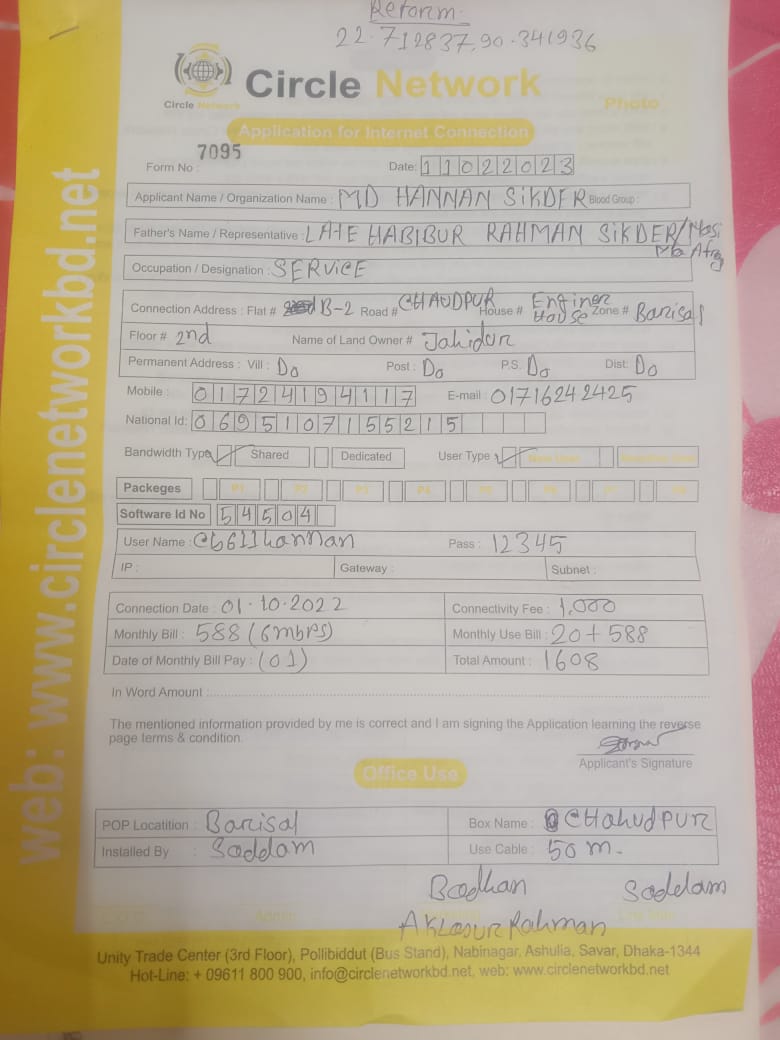 Reform.
22.712837,90.341936
Circle Network
Circle Network
Photo
Application for Internet Connection
Form No : 7095
Date: 11022023
Applicant Name / Organization Name : MD HANNAN SiKDER Blood Group :
Father's Name / Representative : LATE HABIBUR RAHMAN SiKDER/
Occupation / Designation : SERViCE
Connection Address : Flat # B-2 Road # CHAUDPUR House # Enginer House Zone # Barisal
Floor # 2nd Name of Land Owner # Jahidur
Permanent Address : Vill : Do Post : Do P.S. Do Dist: Do
Mobile : 01724194117 E-mail : 01716242425
National Id: 0695107155215
Bandwidth Type Shared Dedicated User Type
Packeges P1 P2 P3 P4
Software Id No 54504
User Name : Pass : 12345
IP : Gateway : Subnet :
Connection Date : 01.10.2022 Connectivity Fee : 1,000
Monthly Bill : 588 (6mbps) Monthly Use Bill : 20+588
Date of Monthly Bill Pay : (01) Total Amount : 1608
In Word Amount :
The mentioned information provided by me is correct and I am signing the Application learning the reverse
page terms & condition.
Applicant's Signature
Office Use
POP Locatition : Barisal Box Name : CHahudPUR
Installed By : Saddam Use Cable : 50 m.
Badhan Saddam
Rahman
Unity Trade Center (3rd Floor), Pollibiddut (Bus Stand), Nabinagar, Ashulia, Savar, Dhaka-1344
Hot-Line: + 09611 800 900, info@circlenetworkbd.net, web: www.circlenetworkbd.net
web: www.circlenetworkbd.net